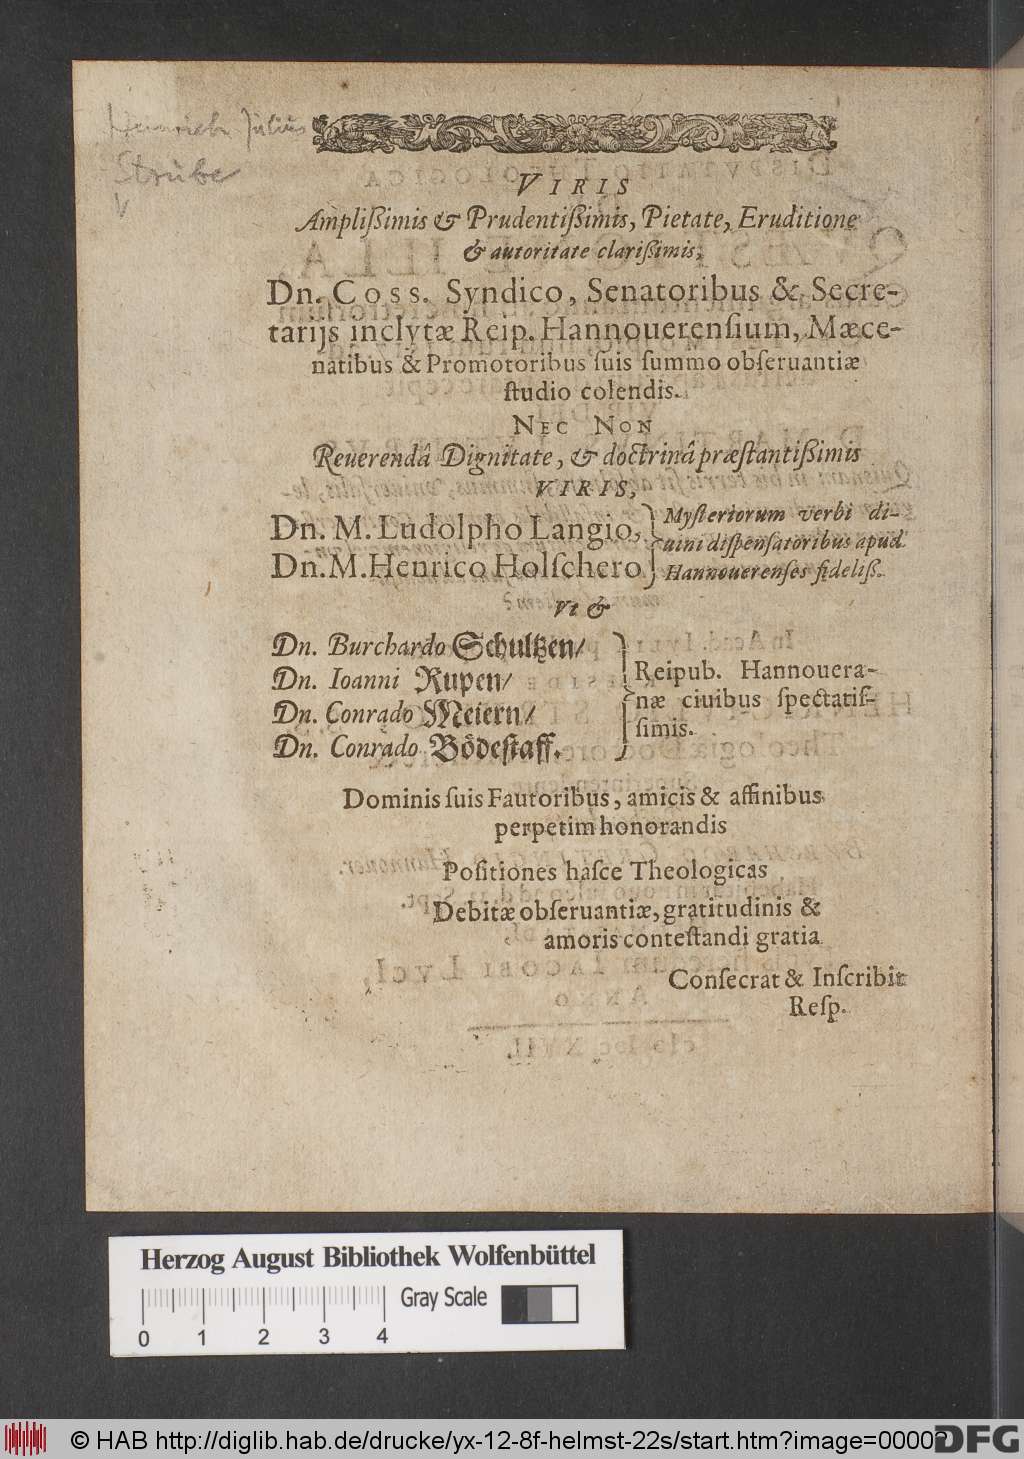 Heinrich Julius
Strube
V
VIRIS
Ampliſſimis & Prudentiſſimis, Pietate, Eruditione
& autoritate clariſſimis,
Dn. Coss. Syndico, Senatoribus & Secre-
tarijs inclytæ Reip. Hannouerenſium, Mæce-
natibus & Promotoribus ſuis ſummo obſeruantiæ
ſtudio colendis.
NEC NON
Reuerendâ Dignitate, & doctrinâ præſtantiſſimis
VIRIS,
Dn. M. Ludolpho Langio,
Dn. M. Henrico Holſchero
Myſteriorum verbi di-
uini diſpenſatoribus apud
Hannouerenſes fideliſſ.
Vt &
Dn. Burchardo Schultzen/
Dn. Ioanni Rupen/
Dn. Conrado Meiern/
Dn. Conrado Bödeſtaff.
Reipub. Hannouera-
næ ciuibus ſpectatiſ-
ſimis.
Dominis ſuis Fautoribus, amicis & affinibus
perpetim honorandis
Poſitiones haſce Theologicas
Debitæ obſeruantiæ, gratitudinis &
amoris conteſtandi gratia
Conſecrat & Inſcribit
Reſp.
Herzog August Bibliothek Wolfenbüttel
Gray Scale
0 1 2 3 4
© HAB http://diglib.hab.de/drucke/yx-12-8f-helmst-22s/start.htm?image=00002
DFG